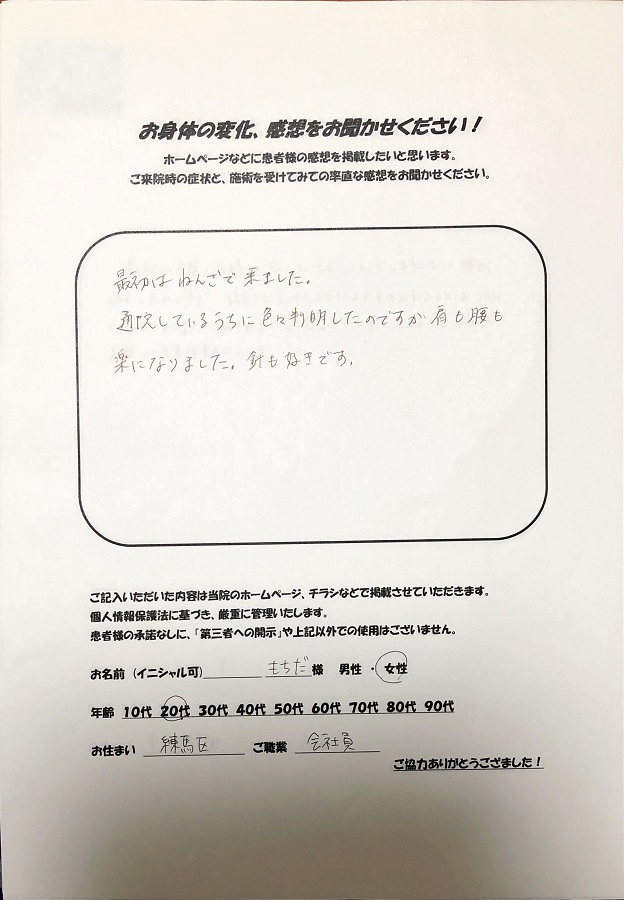 お身体の変化、感想をお聞かせください！
ホームページなどに患者様の感想を掲載したいと思います。
ご来院時の症状と、施術を受けてみての率直な感想をお聞かせください。
最初はねんざで来ました。
通院しているうちに色々判明したのですが肩も腰も
楽になりました。針も好きです。
ご記入いただいた内容は当院のホームページ、チラシなどで掲載させていただきます。
個人情報保護法に基づき、厳重に管理いたします。
患者様の承諾なしに、「第三者への開示」や上記以外での使用はございません。
お名前（イニシャル可） もちだ 様 男性 ・ 女性
年齢 10代 20代 30代 40代 50代 60代 70代 80代 90代
お住まい 練馬区 ご職業 会社員
ご協力ありがとうござました！